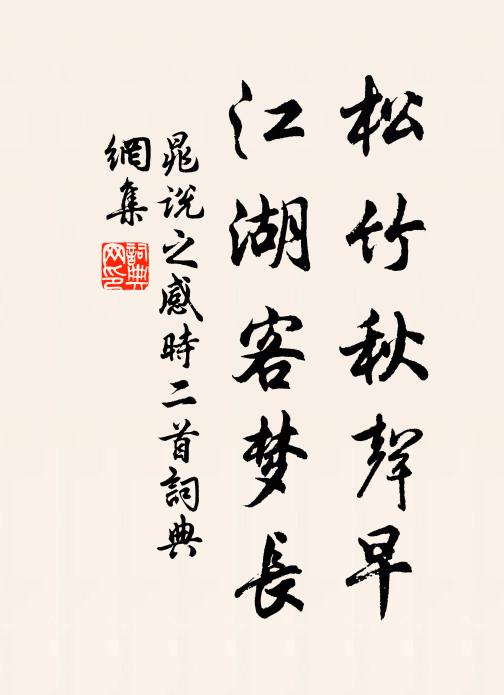 松竹秋聲早
江湖客梦長
晁说之感時二首詞典
網集
詞典
网印